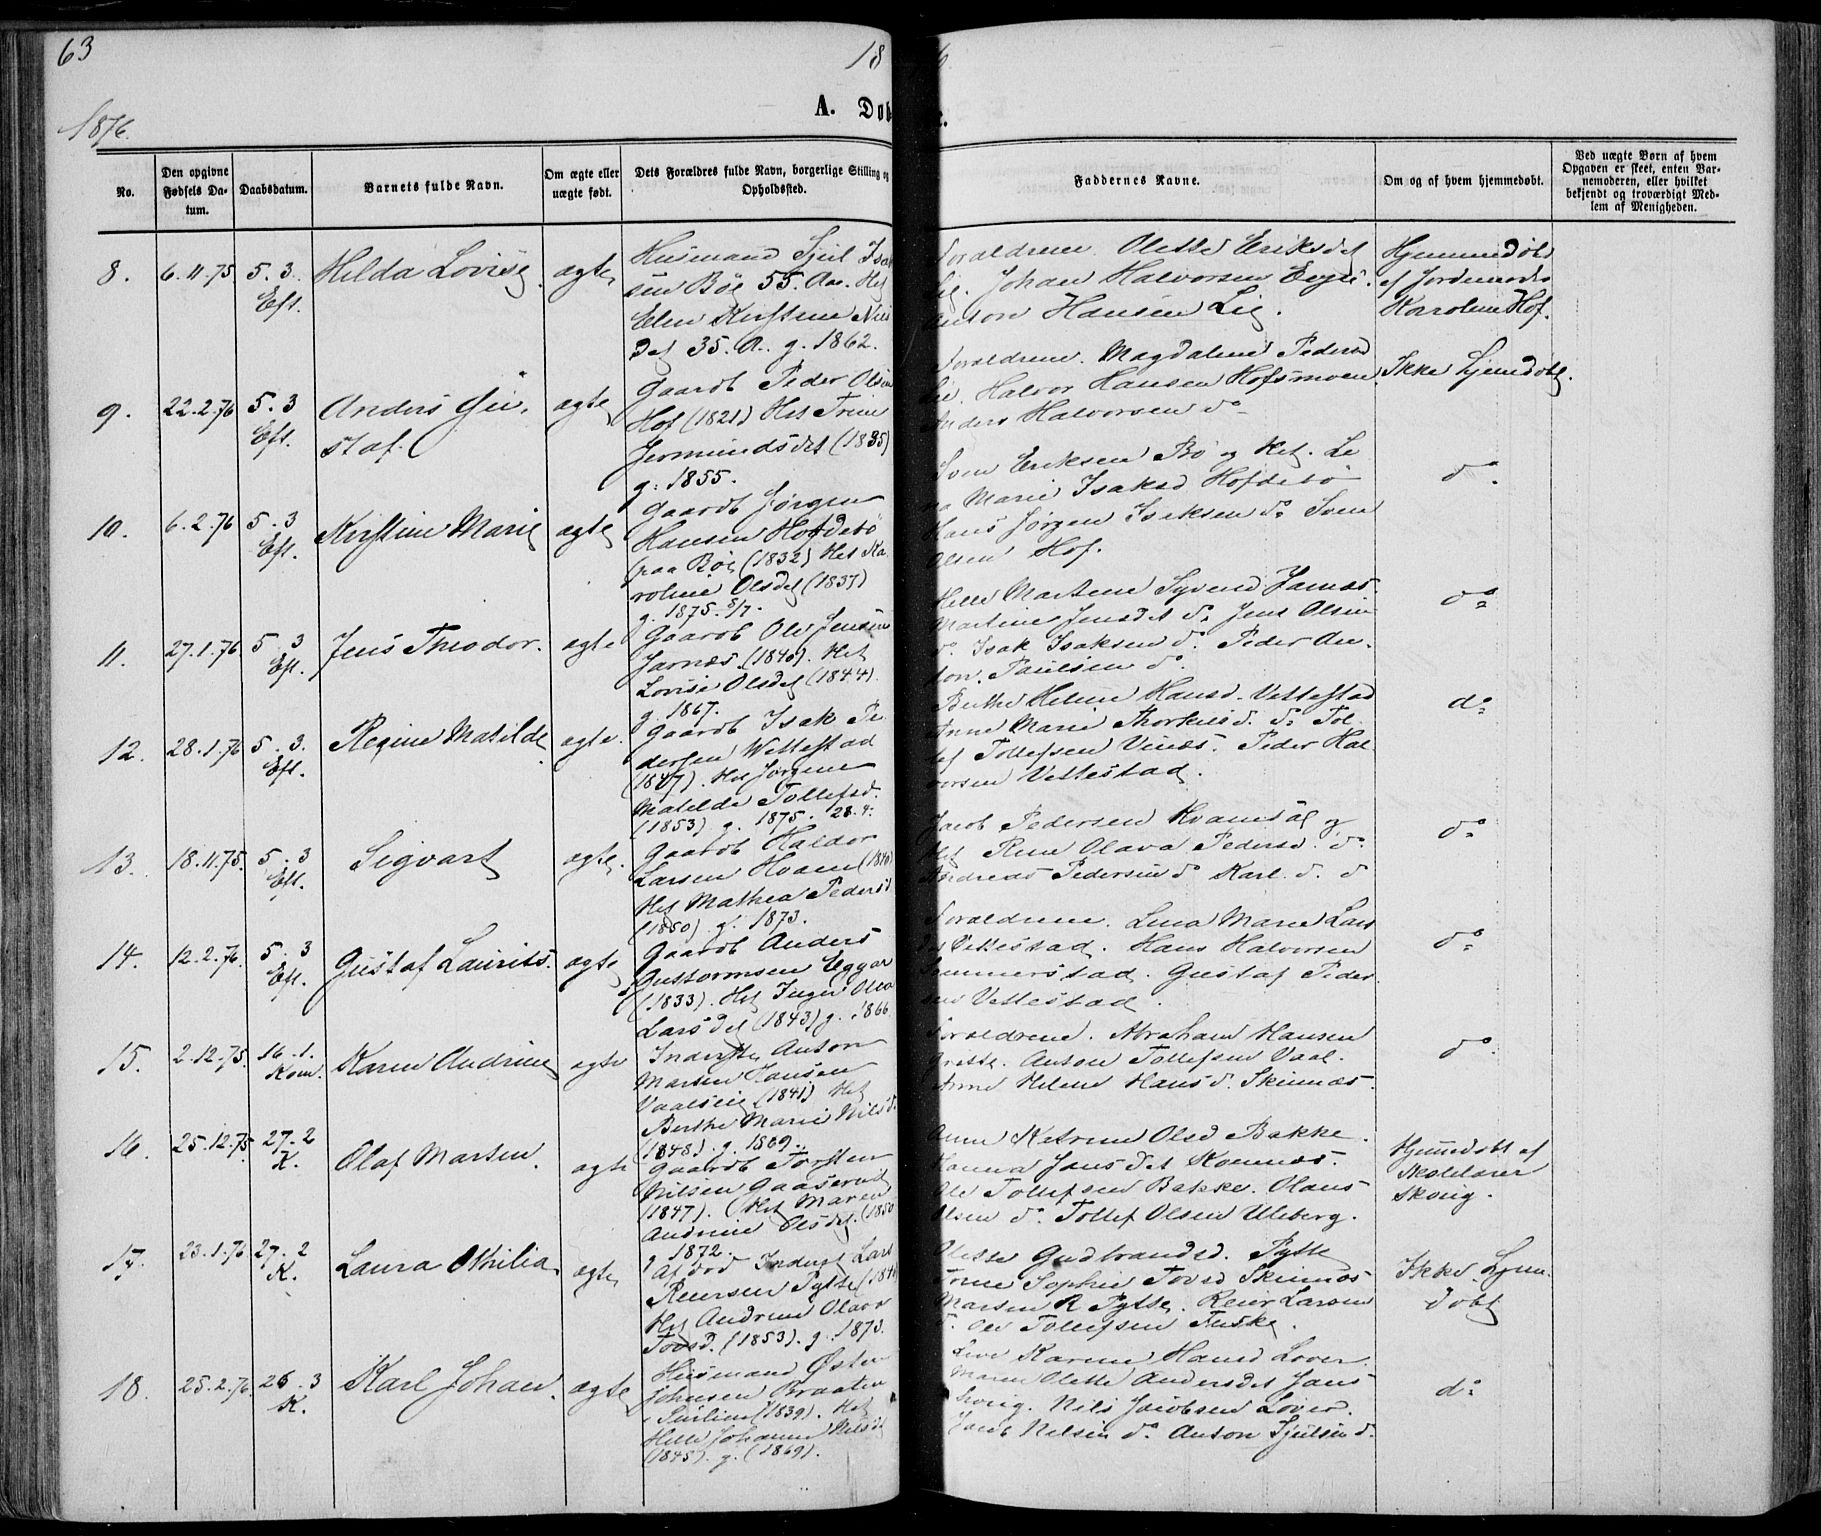 63
18
6
1876.
A. Døb
No.
Den opgivne Fødsels Da-
tum.
Daabsdatum.
Barnets fulde Navn.
Om ægte eller
uægte født.
Dets Forældres fulde Navn, borgerlige Stilling og
Opholdssted.
Faddernes Navne.
Om og af hvem hjemmedøbt.
Ved uægte Børn af hvem
Opgaven er skeet, enten Bar-
nemoderen, eller hvilket
bekjendt og troværdigt Med-
lem af Menigheden.
8. 6.11.75 5.3. Eft. Hilda Lovise ægte
Husmand Sjul Isak
sen Bøe 55. Aar. Het
Elen Kirstine Nils
det 35. A. g. 1862.
Forældrene. Olette Eriksdet
Lie. Johan Halvorsen
Anton Hansen Lie.
Hjemmedøbt
af Jordemoder
Karoline Hof.
9. 22.2.76 5.3 Eft. Anders Gu-
staf. ægte
Gaardb Peder Olsen
Hof (1821) Het Trine
Jermundsdet (1835)
g. 1855.
Forældrene. Magdalene Pedersd
Lie, Halvor Hansen Hofsmoen
Anders Halvorsen do
Ikke hjemdøbt.
10. 6.2.76 5.3 Eft. Kirstine Marie ægte
Gaardb Jørgen
Hansen Hofdebø
paa Bøe (1832) Het Ka
roline Olsdet (1837)
g. 1875. 5/7.
Sven Eriksen Bø og Het. Le
na Marie Isaksd Hofdebø
Hans Jørgen Isaksen do Sven
Olsen Hof.
do
11. 27.1.76 5.3 Eft. Jens Theodor. ægte
Gaardb Ole Jensen
Jarnæs. (1840). Het
Lovise Olsdet (1844).
g. 1867.
Helle Martene Syvend Jarnæs
Martine Jensdet do Jens Olsen
do Isak Isaksen do Peder An-
ton Paulsen do
do
12. 28.1.76 5.3. Eft. Regine Matilde ægte.
Gaardb Isak Pe
dersen Wettestad
(1847). Het Jørgine
Matilde Tollefsd.
(1853) g. 1875. 28.9.
Berthe Helene Hansd. Vettestad
Anne Marie Thorkilsd. do Tol
lef Tollefsen Vinæs. Peder Hal
vorsen Vettestad.
do
13. 18.11.75. 5.3 Eft. Sigvart ægte.
Gaardb Haldor
Larsen Hvam (1840)
Het Mathea Pedersd
(1850) g. 1873.
Jacob Pedersen Kvamsål og
Het Rine Olava Pedersd. do
Andreas Pedersen do Karl do do
do
14. 12.2.76. 5.3 Eft. Gustaf Laurits. ægte
Gaardb Anders
Guttormsen Eggar
(1833). Het Inger Olea
Larsdet (1843) g. 1866
Forældrene. Lina Marie Lars
det Vettestad. Hans Halvorsen
Sommerstad. Gustaf Peder
sen Vettestad.
do
15. 2.12.75. 16.1. Kom. Karen Andrine ægte
Inderste Anton
Marsen Hansen
(1841) Het
Berthe Marie Nilsd.
(1848). g. 1869.
Forældrene. Abraham Hansen
Anton Tollefsen Vaal.
Anne Helene Hansd. Skinnæs.
do
16. 25.12.75. 27.2 K. Olaf Martin. ægte
Gaardb Torsten
Nilsen Gaaserud
(1847). Het Maren
Andrine Olsdet. (1850
g 1872.
Anne Katrine Olsd Bakke.
Hanna Jansdet
Ole Tollefsen Bakke. Olaus
Olsen do Tollef Olsen Uleberg.
Hjemmedøbt af
Skolelærer
Skovig.
17. 23.1.76 27.2 K. Laura Othilia ægte
Afdød Inderst Lars
Reiersen Pytte (184
Het Andrine Olava
Tovsd. (1853). g. 1873.
Olette Gudbrandsd. Pytte
Trine Sophie Tovsd Skinnæs
Marten R Pytte. Reier Larsen
do Ole Tollefsen Fuske.
Ikke hjem-
døbt
18. 25.2.76. 26.3 K. Karl Johan. ægte
Husmand Østen
Johnsen Braaten
(1839). Het
Helle Johanne Nilsdt
(1845). g. (1869).
Live Karine Hansd Lover.
Maren Olette Andersdet Jans
Nils Jacobsen Lover.
Jacob Nelsen do Anton Sjulsen do
do